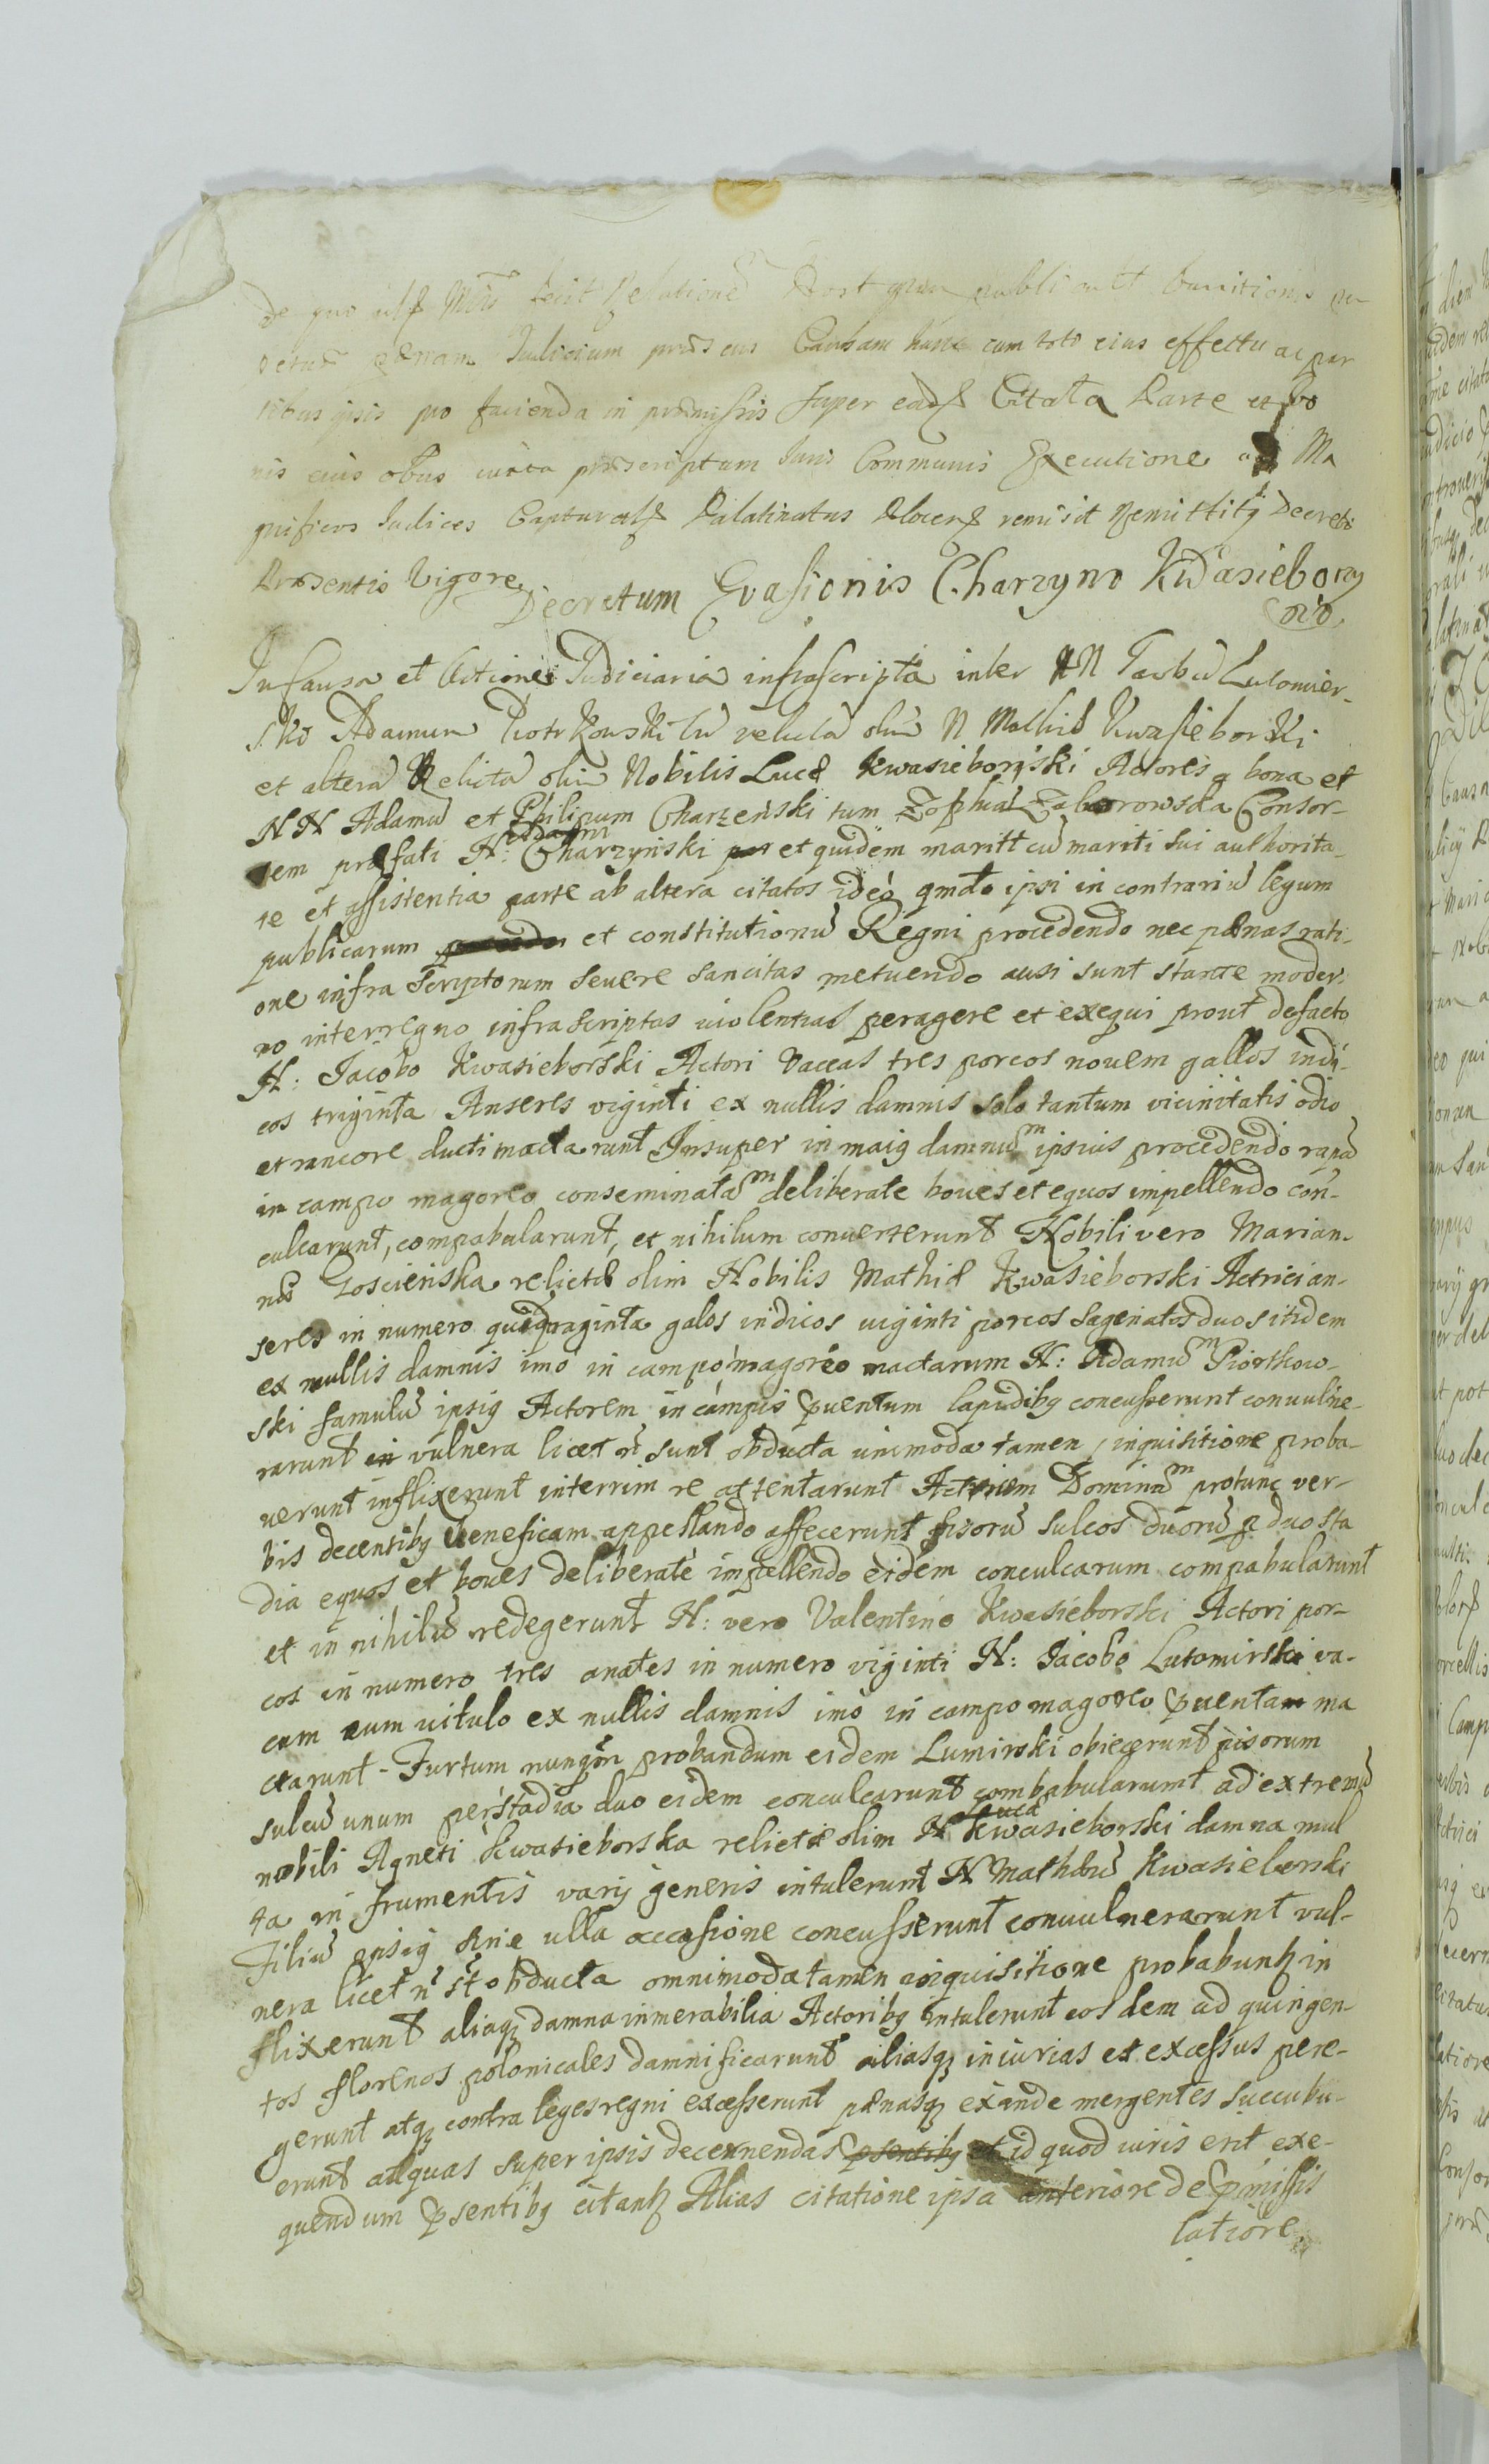 de quo idem Mins fecit Relationem Post quam publicatt bannitionis
pœnam Judicium præsens Causam hanc cum toto eius effectu ac par
tibus ipsis pro facienda in præmissis super eadem Citata Parte et bo
nis eius obus iuxta præscriptum Iuris Communis Executione ad Ma
gnificos Iudices Capturales Palatinatus Plocens remisit Remittitq Decreti
Præsentis Vigore
Decretum Evasionis Charzyno Kwasieborzy
Covo
In Causa et Actione Judiciaria infrascripta inter NN Jacobū Lutomier-
sko Adamum Piotrkowski tū relictā olim N Mathiæ Kwasieborski
et alterā Relictā olim Nobilis Lucæ Kwasieborski Actores a bona et
NN Adamū et Philipum Charzeński tum Zophiā Zaborowska Consor-
tem præfati N: Adami Charzyński et quidem maritt cū mariti sui authorita-
te et assistentia parte ab altera citatos ideo qmdo ipsi in contrariū legum
publicarum et constitutionū Regni procedendo nec pœnas rati-
one infra scriptorum seuere sancitas metuendo ausi sunt stante moder-
no interregno infra scriptas uiolentias peragere et exequi prout defacto
N: Jacobo Kwasieborski Actori vaccas tres porcos nouem gallos indi-
cos triginta Anseres viginti ex nullis damnis solo tantum vicinitatis odio
et rancore ducti mactarunt Insuper in maig damnum ipsius procedendo rapā
in campo magoreo conseminatam deliberate boues et equos impellendo con-
culcarunt, compabularunt, et nihilum conuerterunt Nobili vero Marian-
næ Goscieńska relictæ olim Nobilis Mathiæ Kwasieborski Actrici an-
seres in numero quadraginta galos indicos uiginti porcos saginatos duos itidem
ex nullis damnis imo in campo magoreo mactarum N: Adamum Piortkow-
ski famulū ipsig Actorem in campis puentum lapidibg concusserunt conuulne-
rarunt in vulnera licet n̄ sunt obducta unimoda tamen inquisitione proba-
uerunt inflixerunt interrim re attentarunt Actricem Dominam protunc ver-
bis decentibg Veneficam appellando affecerunt pisorū sulcos duorū p duo sta
dia equos et boues deliberatè impellendo eidem conculcarum compabularunt
et in nihilū redegerunt N: vero Valentino Kwasieborski Actori por-
cos in numero tres anates in numero viginti N: Jacobo Lutomirski va-
cam cum uitulo ex nullis damnis imo in campo magoreo puentam ma
ctarunt - Furtum nunqm probandum eidem Lumirski obiecerunt pisorum
sulcū unum per stadia duo eidem conculcarunt combabularunt ad extremū
nobili Agneti Kwasieborska relictæ olim N Lucæ Kwasieborski damna mul
ta in frumentis varij generis intulerunt N Mathæū Kwasieborski
Filiū ipsig sine ulla occasione concusserunt conuulnerarunt vul-
nera licet n̄ st obducta omnimoda tamen inquisitione probabuntz in
flixerunt aliaqz damna inmerabilia Actoribg intulerunt eosdem ad quingen-
tos florenos polonicales damnificarunt aliasqz iniurias et excessus pere-
gerunt atqz contra leges regni excesserunt pœnasqz exinde mergentes succubu-
erunt ad quas super ipsis decernendas psentibg et id quod iuris erit exe-
quendum psentibg citantz Alias citatione ipsa anteriore de pmissis
latiore